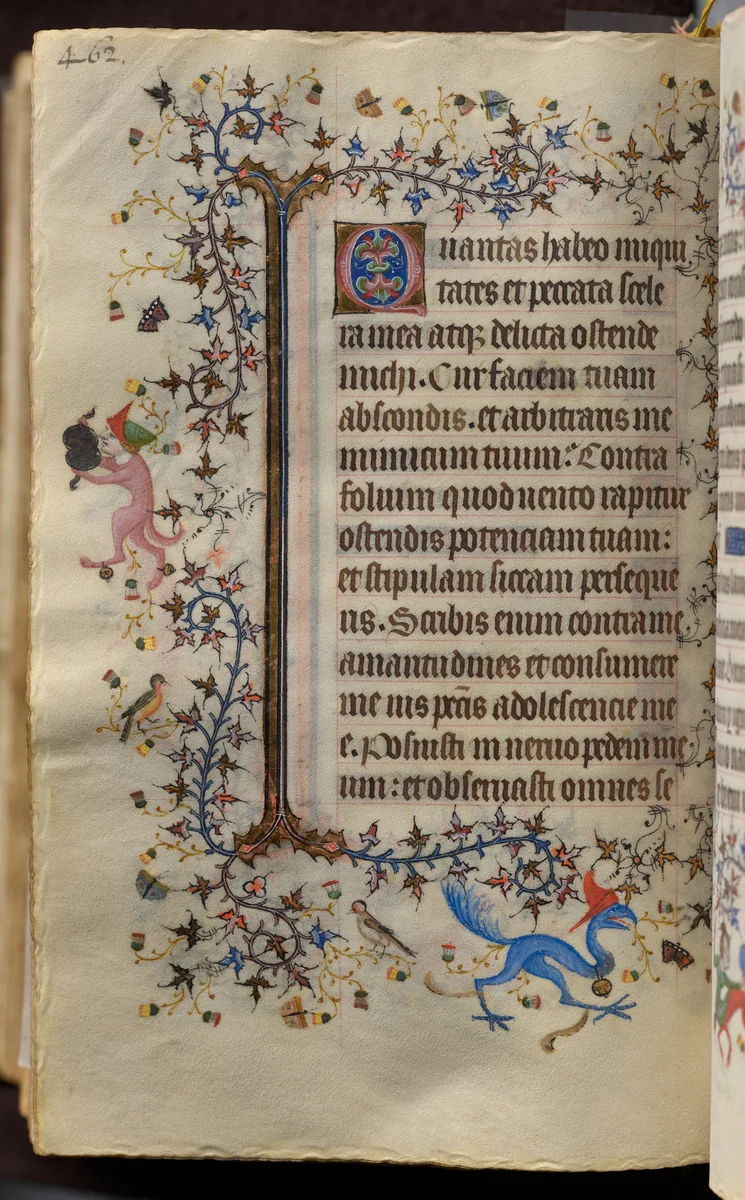 462.
Quantas habeo iniqui
tates et peccata scele
ra mea atqꝫ delicta ostende
michi. Cur faciem tuam
abscondis. et arbitraris me
inimicum tuum: Contra
folium quod uento rapitur
ostendis potenciam tuam:
et stipulam siccam perseque
ris. Scribis enim contra me
amaritudines et consumere
me uis pctis adolescencie me
e. Posuisti in neruo pedem me
um: et obseruasti omnes se